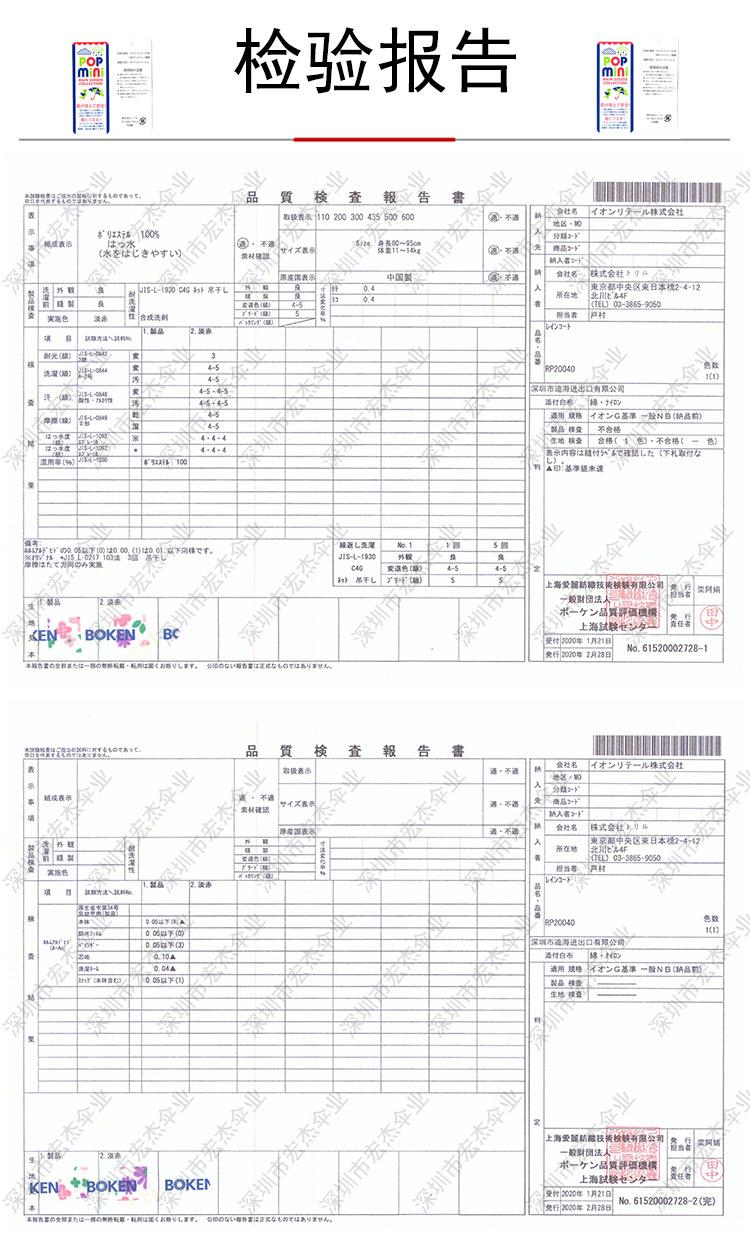 检验报告
POP
mini
RAIN GOODS
COLLECTION
POP
mini
RAIN GOODS
COLLECTION
本試験結果はご提出の試料に対するものであって、
荷口を代表するものではありません。
品質検査報告書
表示事項
組成表示
ポリエステル 100%
はっ水
(水をはじきやすい)
適・不適
素材確認
取扱表示 110 200 300 435 500 600
適・不適
サイズ表示
Size. 身長80～95cm
体重11～14kg
適・不適
原産国表示 中国製
適・不適
製品検査
洗濯前
外観 良
縫製 良
実施色 淡赤
耐洗濯性
JIS-L-1930 C4G ネット 吊干し
合成洗剤
外観 良
縫製 良
変退色(級) 4-5
ブリード(級) 5
バッキリング(級)
寸法変化率%
タテ 0.4
ヨコ 0.4
検査結果
項目 試験方法＼試料No. 1.製品 2.淡赤
耐光(級) JIS-L-0842 変 3
洗濯(級) JIS-L-0844 A-2号 変 4-5
汚 4-5
汗(級) JIS-L-0848 酸性・アルカリ性 変 4-5・4-5
汚 4-5・4-5
摩擦(級) JIS-L-0849 乾 4-5
湿 4-5
はっ水度(級) JIS-L-1092 スプレー法 ※ 4・4・4
はっ水度(級) JIS-L-1092 スプレー法 * 4・4・4
混用率(%) JIS-L-1030 ポリエステル 100
備考:
ホルムアルデヒドの0.05以下(0)は0.00, (1)は0.01 以下同様です。
※オリジナル *JIS L 0217 103法 3回 吊干し
摩擦はたて方向のみ実施
繰返し洗濯 No.1 1回 5回
JIS-L-1930 外観 良 良
C4G 変退色(級) 4-5 4-5
ネット 吊干し ブリード(級) 5 5
生地見本
1.製品 2.淡赤
KEN BOKEN BO
本報告書の全部または一部の無断転載・転用は固くお断りします。 公印のない報告書は正式なものではありません。
納入先
会社名 イオンリテール株式会社
地区・MO
分類コード
商品コード
納入者
納入者コード
会社名 株式会社トリル
所在地 東京都中央区東日本橋2-4-12
北川ビル4F
(TEL) 03-3865-9050
担当者 戸村
品名・品番
レインコート
RP20040
色数
1(1)
深圳市迪海进出口有限公司
添付白布 綿・ナイロン
適用規格 イオンG基準 一般NB(納品前)
製品検査 不合格
生地検査 合格( 1 色)・不合格( ー 色)
判定
表示内容は縫付ラベルで確認した（下札取付なし）。
▲印:基準値未達
上海愛麗紡織技術検験有限公司
一般財団法人
ボーケン品質評価機構
上海試験センター
発行担当者 栾阿娟
発行責任者 田中
受付 2020年 1月21日
発行 2020年 2月28日
No. 61520002728-1
本試験結果はご提出の試料に対するものであって、
荷口を代表するものではありません。
品質検査報告書
表示事項
組成表示
適・不適
素材確認
取扱表示 適・不適
サイズ表示 適・不適
原産国表示 適・不適
製品検査
洗濯前
外観
縫製
実施色
耐洗濯性
外観
縫製
変退色(級)
ブリード(級)
バッキリング(級)
寸法変化率%
検査結果
項目 試験方法＼試料No. 1.製品 2.淡赤
ホルムアルデヒド (A-Ao)
厚生省令第34号
乳幼児用(製品)
本体 0.05以下(4)▲
防水フィルム 0.05以下(0)
バインダー 0.05以下(3)
芯地 0.10▲
洗濯ネーム 0.04▲
スナップ(本体含む) 0.05以下(1)
生地見本
1.製品 2.淡赤
KEN BOKEN BOKEN
本報告書の全部または一部の無断転載・転用は固くお断りします。 公印のない報告書は正式なものではありません。
納入先
会社名 イオンリテール株式会社
地区・MO
分類コード
商品コード
納入者
納入者コード
会社名 株式会社トリル
所在地 東京都中央区東日本橋2-4-12
北川ビル4F
(TEL) 03-3865-9050
担当者 戸村
品名・品番
レインコート
RP20040
色数
1(1)
深圳市迪海进出口有限公司
添付白布 綿・ナイロン
適用規格 イオンG基準 一般NB(納品前)
製品検査
生地検査
判定
上海愛麗紡織技術検験有限公司
一般財団法人
ボーケン品質評価機構
上海試験センター
発行担当者 栾阿娟
発行責任者 田中
受付 2020年 1月21日
発行 2020年 2月28日
No. 61520002728-2(完)
深圳市宏杰伞业